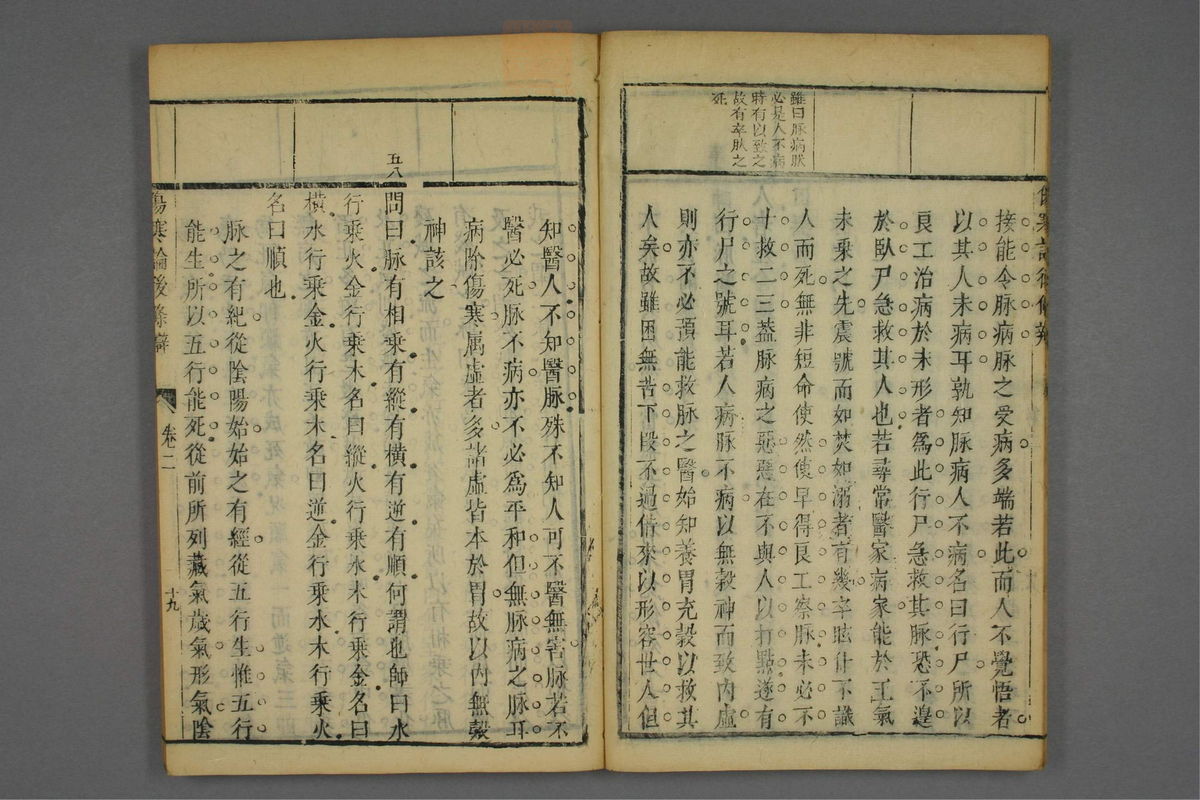 雖曰脉病狀
必是人不病
時有以致之
故有卒肰之
死
接能令脉病脉之受病多端若此而人不覺悟者
以其人未病耳孰知脉病人不病名曰行尸所以
良工治病於未形者為此行尸急救其脉恐不遑
於臥尸急救其人也若尋常醫家病家能於王氣
未乘之先震號而如焚如溺者有幾卒眩仆不識
人而死無非短命使然使早得良工察脉未必不
十救二三葢脉病之惡惡在不與人以打點遂有
行尸之號耳若人病脉不病以無穀神而致內虛
則亦不必預能救脉之醫始知養胃充穀以救其
人矣故雖困無苦下叚不過借來以形容世人但
知醫人不知醫脉殊不知人可不醫無害脉若不
醫必死脉不病亦不必為平和但無脉病之脉耳
病除傷寒属虛者多諸虛皆本於胃故以內無穀
神該之
五八
問曰脉有相乘有縱有橫有逆有順何謂也師曰水
行乘火金行乘木名曰縱火行乘水木行乘金名曰
橫水行乘金火行乘木名曰逆金行乘水木行乘火
名曰順也
脉之有紀從陰陽始始之有經從五行生惟五行
能生所以五行能死從前所列藏氣歲氣形氣陰
傷寒論後條辯
卷二
十九